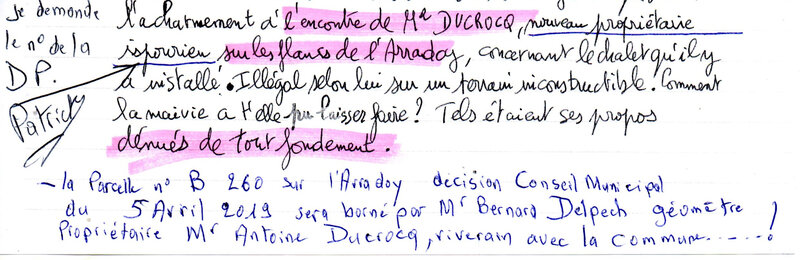 je demande
le n° de la
DP.
Patrick
l'acharnement à l'encontre de Mr DUCROCQ, nouveau propriétaire
ispourien sur les flancs de l'Arradoy, concernant le chalet qu'il y
a installé. Illégal selon lui sur un terrain inconstructible. Comment
la mairie a t'elle pu laisser faire? Tels étaient ses propos
dénués de tout fondement.
- la Parcelle n° B 260 sur l'Arradoy décision Conseil Municipal
du 5 Avril 2019 sera borné par Mr Bernard Delpech géomètre
Propriétaire Mr Antoine Ducrocq, riverain avec la commune.....!